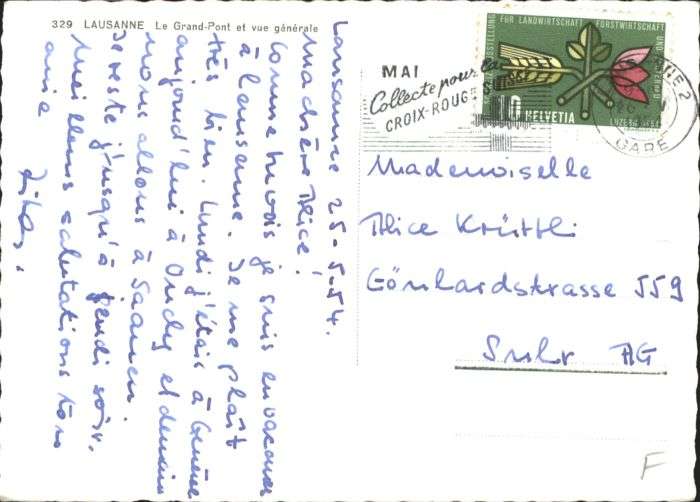 329 LAUSANNE Le Grand-Pont et vue générale
Lausanne 25-5-54.
Ma chère Alice!
Comme tu vois je suis en vacances
à Lausanne. Je me plaît
très bien. Lundi j'étais à Genève
aujourd'hui à Ouchy et demain
nous allons à Saanen.
Je reste jusqu'à jeudi soir.
Meilleures salutations ton
amie
MAI
Collecte pour la
CROIX-ROUGE
AUSSTELLUNG FÜR LANDWIRTSCHAFT FORSTWIRTSCHAFT
UND GARTENBAU
LUZERN 1954
10 HELVETIA
GARE
Mademoiselle
Alice Krüttli
Gönhardstrasse 559
Suhr AG
F